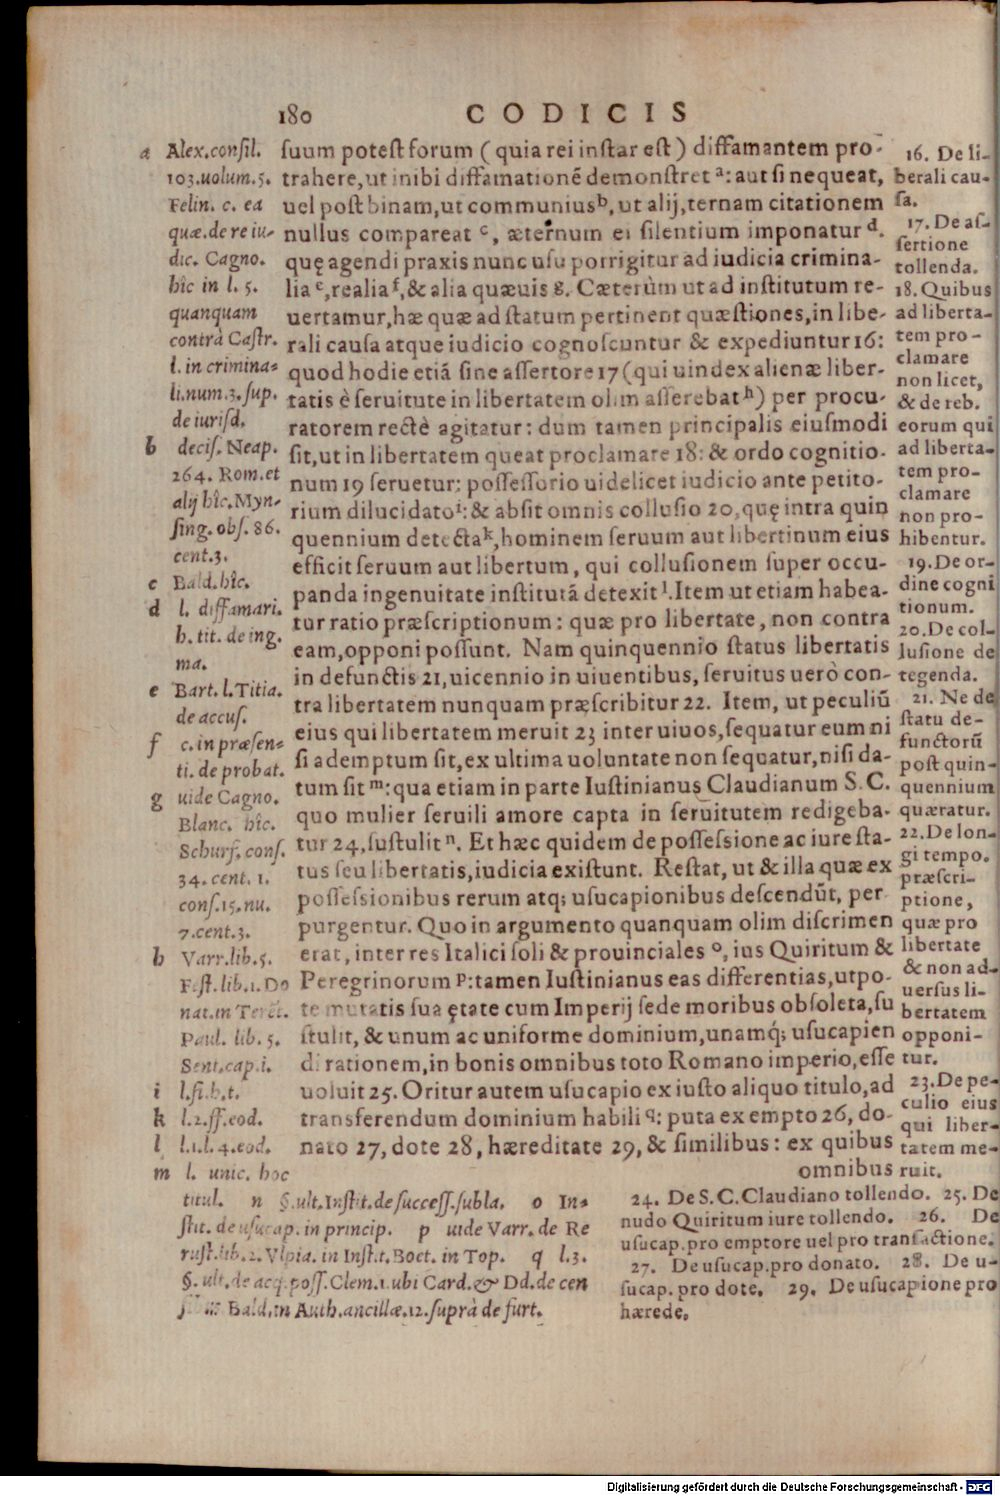 180 CODICIS
suum potest forum ( quia rei instar est ) diffamantem pro-
trahere, ut inibi diffamationē demonstret ᵃ: aut si nequeat,
uel post binam, ut communius ᵇ, ut alij, ternam citationem
nullus compareat ᶜ, æternum ei silentium imponatur ᵈ.
quę agendi praxis nunc usu porrigitur ad iudicia crimina-
lia ᵉ, realia ᶠ, & alia quæuis g. Cæterùm ut ad institutum re-
uertamur, hæ quæ ad statum pertinent quæstiones, in libe-
rali causa atque iudicio cognoscuntur & expediuntur 16:
quod hodie etiā sine assertore 17 (qui uindex alienæ liber-
tatis è seruitute in libertatem olim asserebat ʰ) per procu-
ratorem rectè agitatur: dum tamen principalis eiusmodi
sit, ut in libertatem queat proclamare 18: & ordo cognitio-
num 19 seruetur: possessorio uidelicet iudicio ante petito-
rium dilucidato ⁱ: & absit omnis collusio 20, quę intra quin
quennium detecta ᵏ, hominem seruum aut libertinum eius
efficit seruum aut libertum, qui collusionem super occu-
panda ingenuitate institutā detexit ˡ. Item ut etiam habea-
tur ratio præscriptionum: quæ pro libertate, non contra
eam, opponi possunt. Nam quinquennio status libertatis
in defunctis 21, uicennio in uiuentibus, seruitus uerò con-
tra libertatem nunquam præscribitur 22. Item, ut peculiū
eius qui libertatem meruit 23 inter uiuos, sequatur eum ni
si ademptum sit, ex ultima uoluntate non sequatur, nisi da-
tum sit ᵐ: qua etiam in parte Iustinianus Claudianum S. C.
quo mulier seruili amore capta in seruitutem redigeba-
tur 24, sustulit ⁿ. Et hæc quidem de possessione ac iure sta-
tus seu libertatis, iudicia existunt. Restat, ut & illa quæ ex
possessionibus rerum atq; usucapionibus descendūt, per
purgentur. Quo in argumento quanquam olim discrimen
erat, inter res Italici soli & prouinciales ᵒ, ius Quiritum &
Peregrinorum p: tamen Iustinianus eas differentias, utpo-
te mutatis sua ętate cum Imperij sede moribus obsoleta, su
stulit, & unum ac uniforme dominium, unamq́; usucapien
di rationem, in bonis omnibus toto Romano imperio, esse
uoluit 25. Oritur autem usucapio ex iusto aliquo titulo, ad
transferendum dominium habili q: puta ex empto 26, do-
nato 27, dote 28, hæreditate 29, & similibus: ex quibus
omnibus
a Alex. consil.
103. uolum. 5.
Felin. c. ea
quæ. de re iu-
dic. Cagno.
hîc in l. 5.
quanquam
contrà Castr.
l. in crimina-
li. num. 3. sup.
de iurisd.
b decis. Neap.
264. Rom. et
alij hîc. Myn-
sing. obs. 86.
cent. 3.
c Bald. hîc.
d l. diffamari.
h. tit. de ing.
ma.
e Bart. l. Titia.
de accus.
f c. in præsen-
ti. de probat.
g uide Cagno.
Blanc. hîc.
Schurf. cons.
34. cent. 1.
cons. 15. nu.
7. cent. 3.
h Varr. lib. 5.
Fest. lib. 1. Do
nat. in Terēt.
Paul. lib. 5.
Sent. cap. i.
i l. fi. h. t.
k l. 2. ff. eod.
l l. 1. l. 4. eod.
m l. unic. hoc
titul. n §. ult. Instit. de success. subla. o In-
stit. de usucap. in princip. p uide Varr. de Re
rust. lib. 2. Vlpia. in Inst. t. Boet. in Top. q l. 3.
§. ult. de acq. poss. Clem. 1. ubi Card. & Dd. de cen
Bald. in Auth. ancillæ. 12. suprà de furt.
16. De li-
berali cau-
sa.
17. De as-
sertione
tollenda.
18. Quibus
ad liberta-
tem pro-
clamare
non licet,
& de reb.
eorum qui
ad liberta-
tem pro-
clamare
non pro-
hibentur.
19. De or-
dine cogni
tionum.
20. De col-
lusione de
tegenda.
21. Ne de
statu de-
functorū
post quin-
quennium
quæratur.
22. De lon-
gi tempo.
præscri-
ptione,
quæ pro
libertate
& non ad-
uersus li-
bertatem
opponi-
tur.
23. De pe-
culio eius
qui liber-
tatem me-
ruit.
24. De S. C. Claudiano tollendo. 25. De
nudo Quiritum iure tollendo. 26. De
usucap. pro emptore uel pro transactione.
27. De usucap. pro donato. 28. De u-
sucap. pro dote. 29. De usucapione pro
hærede.
Digitalisierung gefördert durch die Deutsche Forschungsgemeinschaft - DFG